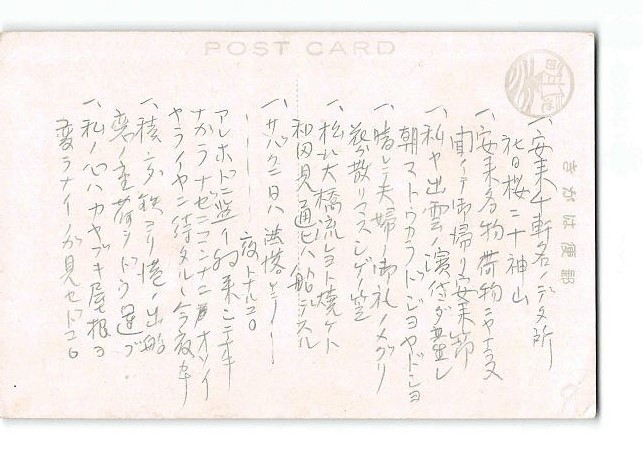 POST CARD
きがは便郵
一、安来千軒名ノデタ所
社日桜ニ十神山
一、安来名物荷物ニャナラヌ
聞イテ御帰リ安来節
一、私ャ出雲ノ濱佐陀生レ
朝マトウカラドジョヤドジョ
一、晴レテ夫婦ノ御礼メグリ
花ガ散リマスシゲノ笠
一、松江大橋流レヨト焼ケト
和田見通ヒハ船デスル
一、サバクニ日ハ
夜トナルコロ
アレホド
ナガラナゼニコンナニ オソイ
ヤライヤニ待タル 今夜
一、積ンダ鉄ヨリ港ノ出船
恋ノ重荷ヲドウ運ブ
一、私ノ心ハカヤブキ屋根ヨ
変ラナイノガ見セドコロ